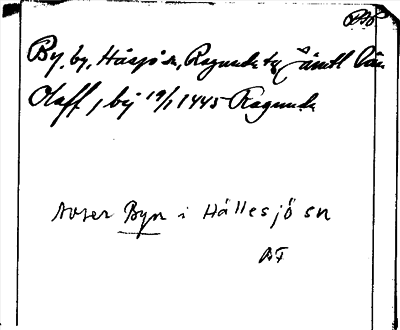 By, by, Håsjö sn, Ragunda tg Jämtl län
Olaff j bÿ 19/1 1445 Ragunda
Avser Byn i Hällesjö sn